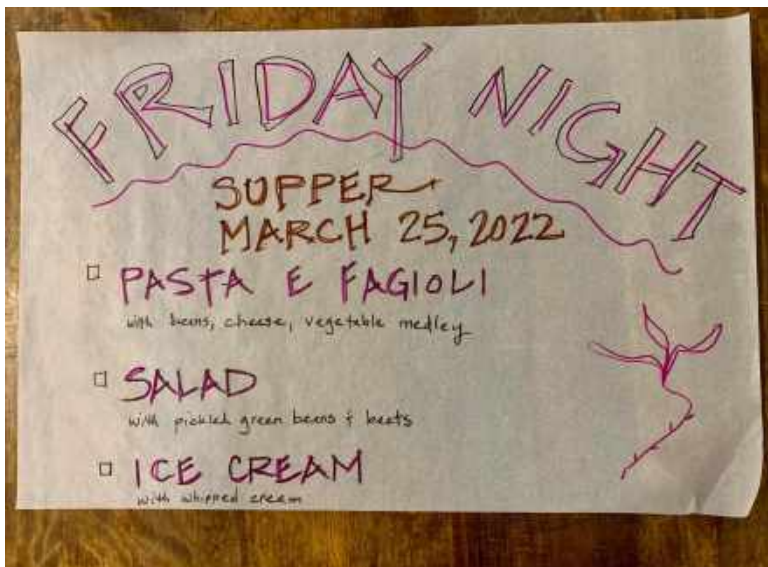 FRIDAY NIGHT
SUPPER
MARCH 25, 2022
PASTA E FAGIOLI
with beans, cheese, vegetable medley
SALAD
with pickled green beans & beets
ICE CREAM
with whipped cream